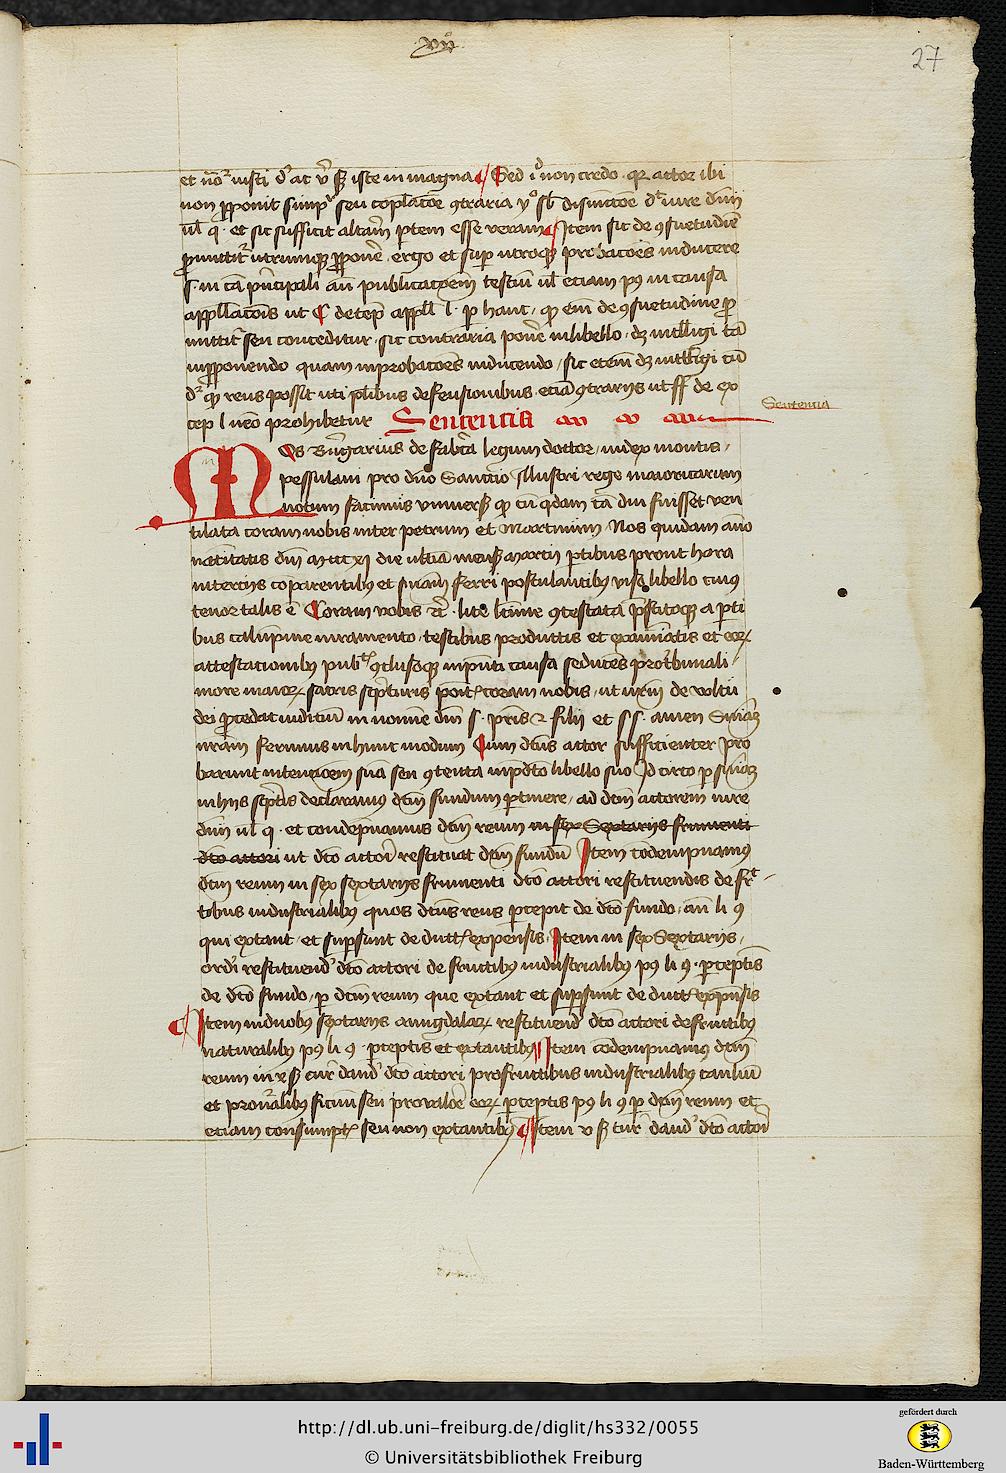 xxij
27
et no iusti d at v ß iste in magna Sed i non credo quar actor ibi
non proponit simpr seu coplacoe 9traria y sb disiuncoe dr iure dmi
ul q et sic sufficit altam ptem esse veram Item sic de 9suetudie
pmittit utrumque ppone ergo et sup utroque probacoes inducere
s in ca pncipali an publicacoem testiu ul eciam p9 in causa
appllacois ut C de temp appll l p hanc quod em de 9suetudine p
mittit seu conceditur sic contraria pone in libello dz intlligi ta
in pponendo quam in probacoes inducendo sic etem dz intlligi cu
dr quod reus possit uti plibus defensionibus ecia 9trariis ut ff de ex
cep l neo prohibetur Sentencia
Sentencia
Nos Bungarius de fabra legum doctor iudex montis
pessulani pro dno Sanccio illustri rege maioricarum
notum facimus vniuersis quod cu qdam ca diu fuisset ven
tilata coram nobis inter petrum et Martinum Nos quidam ano
natiuitatis dni die ultia mens marcii ptibus prout hora
intercijs coparentibus et suam ferri postulantibus viso libello cuius
tenor talis e Coram vobis etc lite lcime 9testata pstitoque a pti
bus calumpnie iuramento testibus productis et examiatis et eorum
attestacionibus pub 9clusoque in pnti causa sedentes pro tbunali
more maiorum sacris scpturis posit coram nobis ut nrm de voltu
dei pcedat iudiciu in nomine dni s pris et filij et s s amen Suiam
nram ferimus in hunc modum Cum dcus actor sufficienter pro
barunt intencioem sua seu 9tenta in pdto libello suo Id circo p suiam
in hijs scptis declaramus dcm fundum ptinere ad dcm actorem iure
dni ul q et condepnamus dcm reum in sex Sextarijs frumenti
dto actori ut dto actori restituat dcm fundu Item codempnamus
dcm reum in sex sextarijs frumenti dco actori restituendis de fruc
tibus industrialibus quos dcus reus pcepit de dco fundo an li 9
qui extant et supsunt de duct expensis Item in sex Sextarijs
ordi restituend dco actori de fructibus industrialibus p9 li 9 pceptis
de dco fundo p dcm reum que extant et supsunt de duct expensis
Item in duobus sextarijs amigdalarum restituend dco actori de fructibus
naturalibus p9 li 9 pceptis et extantibus Item codempnamus dcm
reum in x ß tur dand dco actori pro fructibus industrialibus tanlum
et pro nralibus sicuti seu pro valoe eorum pceptis p9 li 9 p dcm reum et
etiam consumptis seu non extantibus Item v ß tur dand dco actori
http://dl.ub.uni-freiburg.de/diglit/hs332/0055
© Universitätsbibliothek Freiburg
gefördert durch
Baden-Württemberg